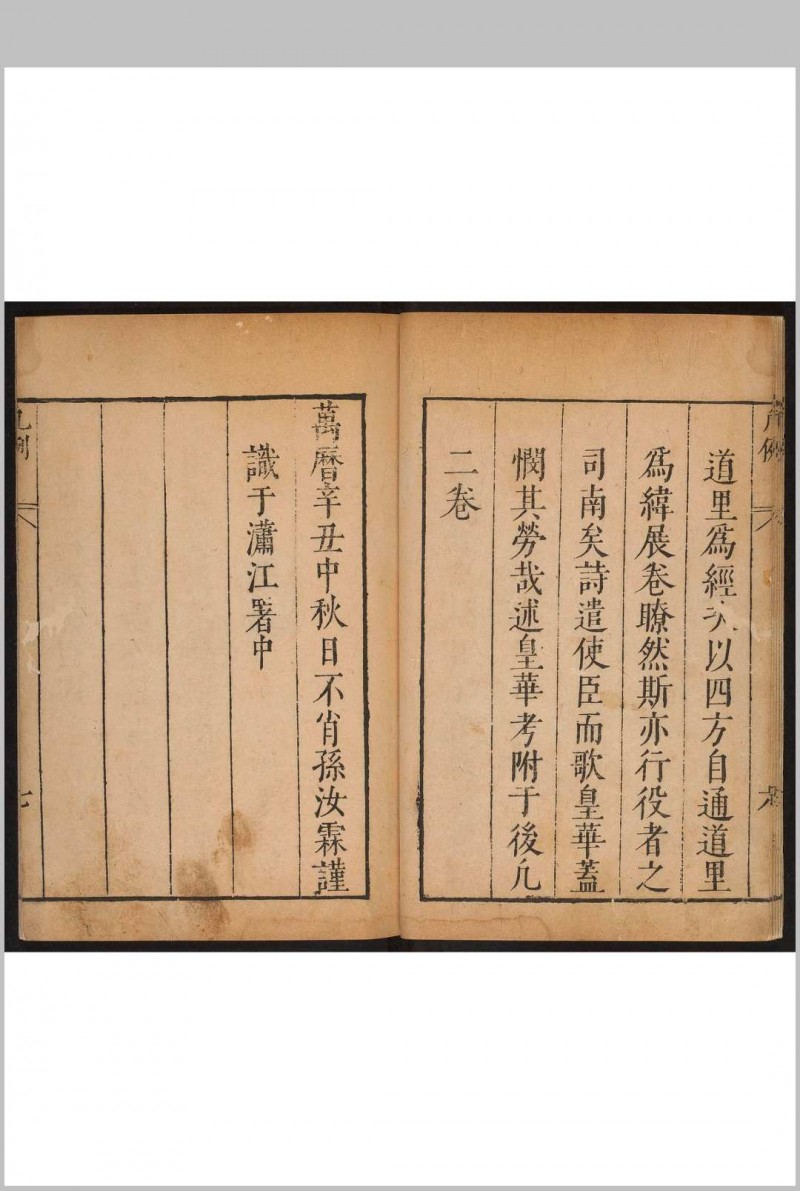 道里爲經次以四方自通道里
爲緯展卷瞭然斯亦行役者之
司南矣詩遣使臣而歌皇華蓋
憫其勞哉述皇華考附于後凡
二卷
萬曆辛丑中秋日不肖孫汝霖謹
識于瀟江署中
凡例
七